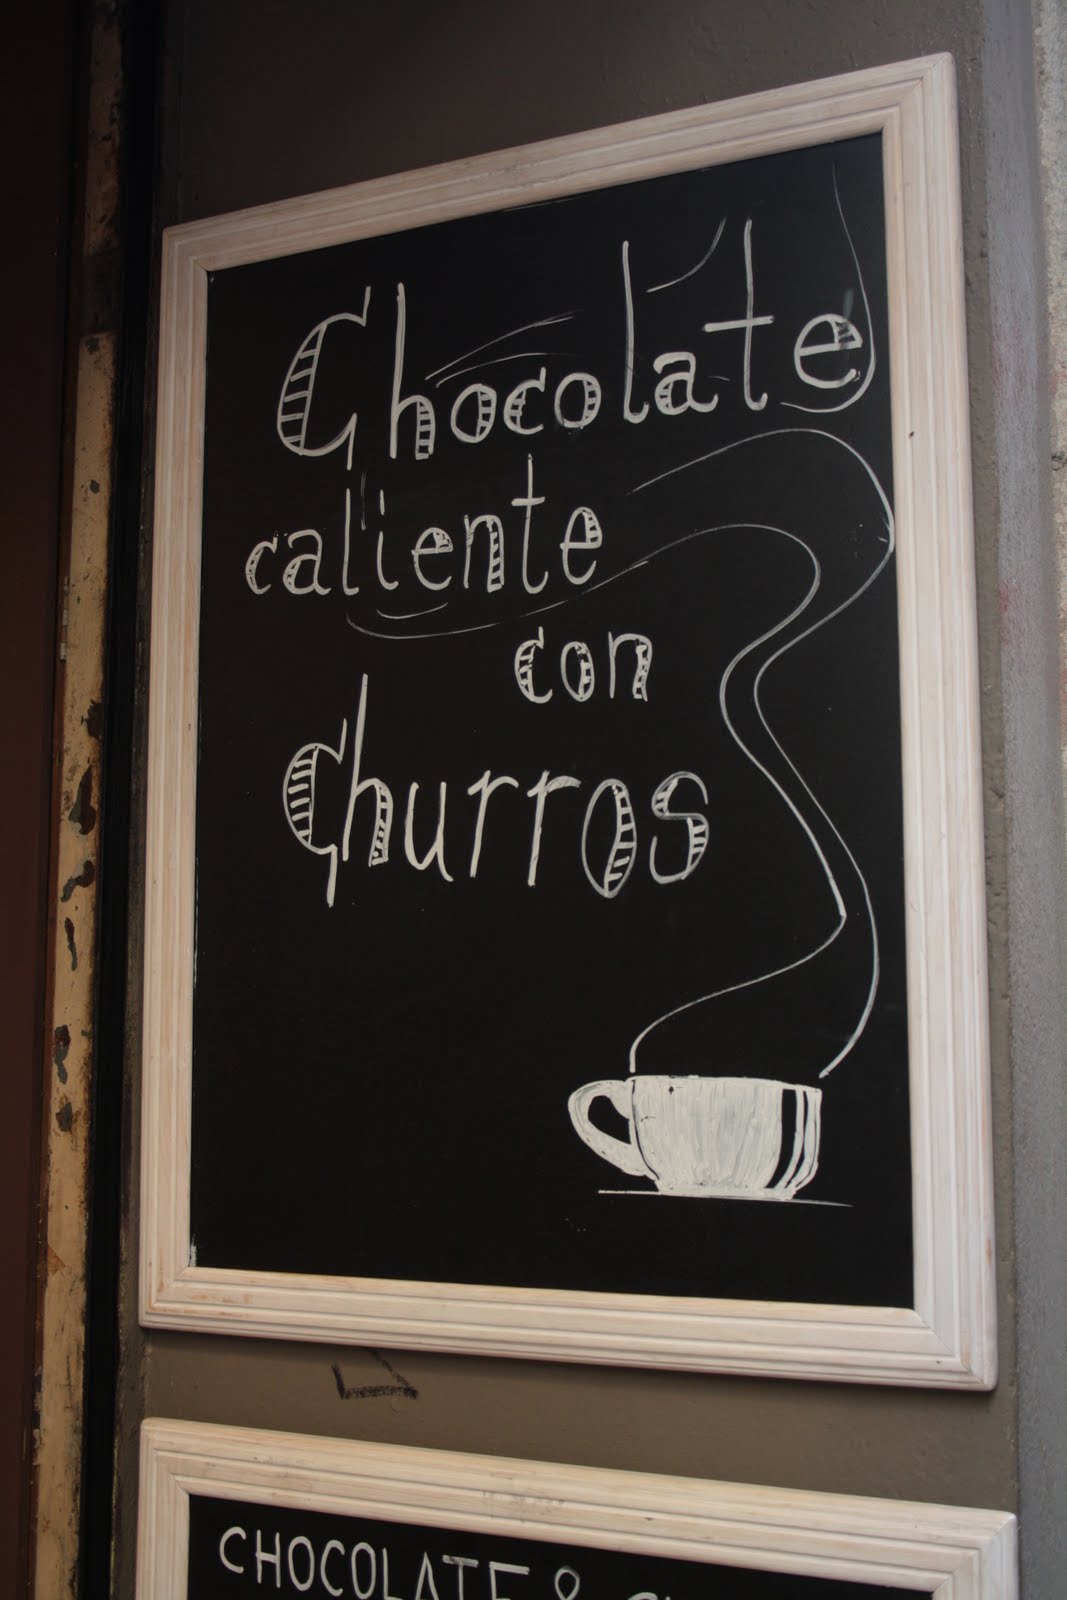 Chocolate
caliente
con
Churros
CHOCOLATE &